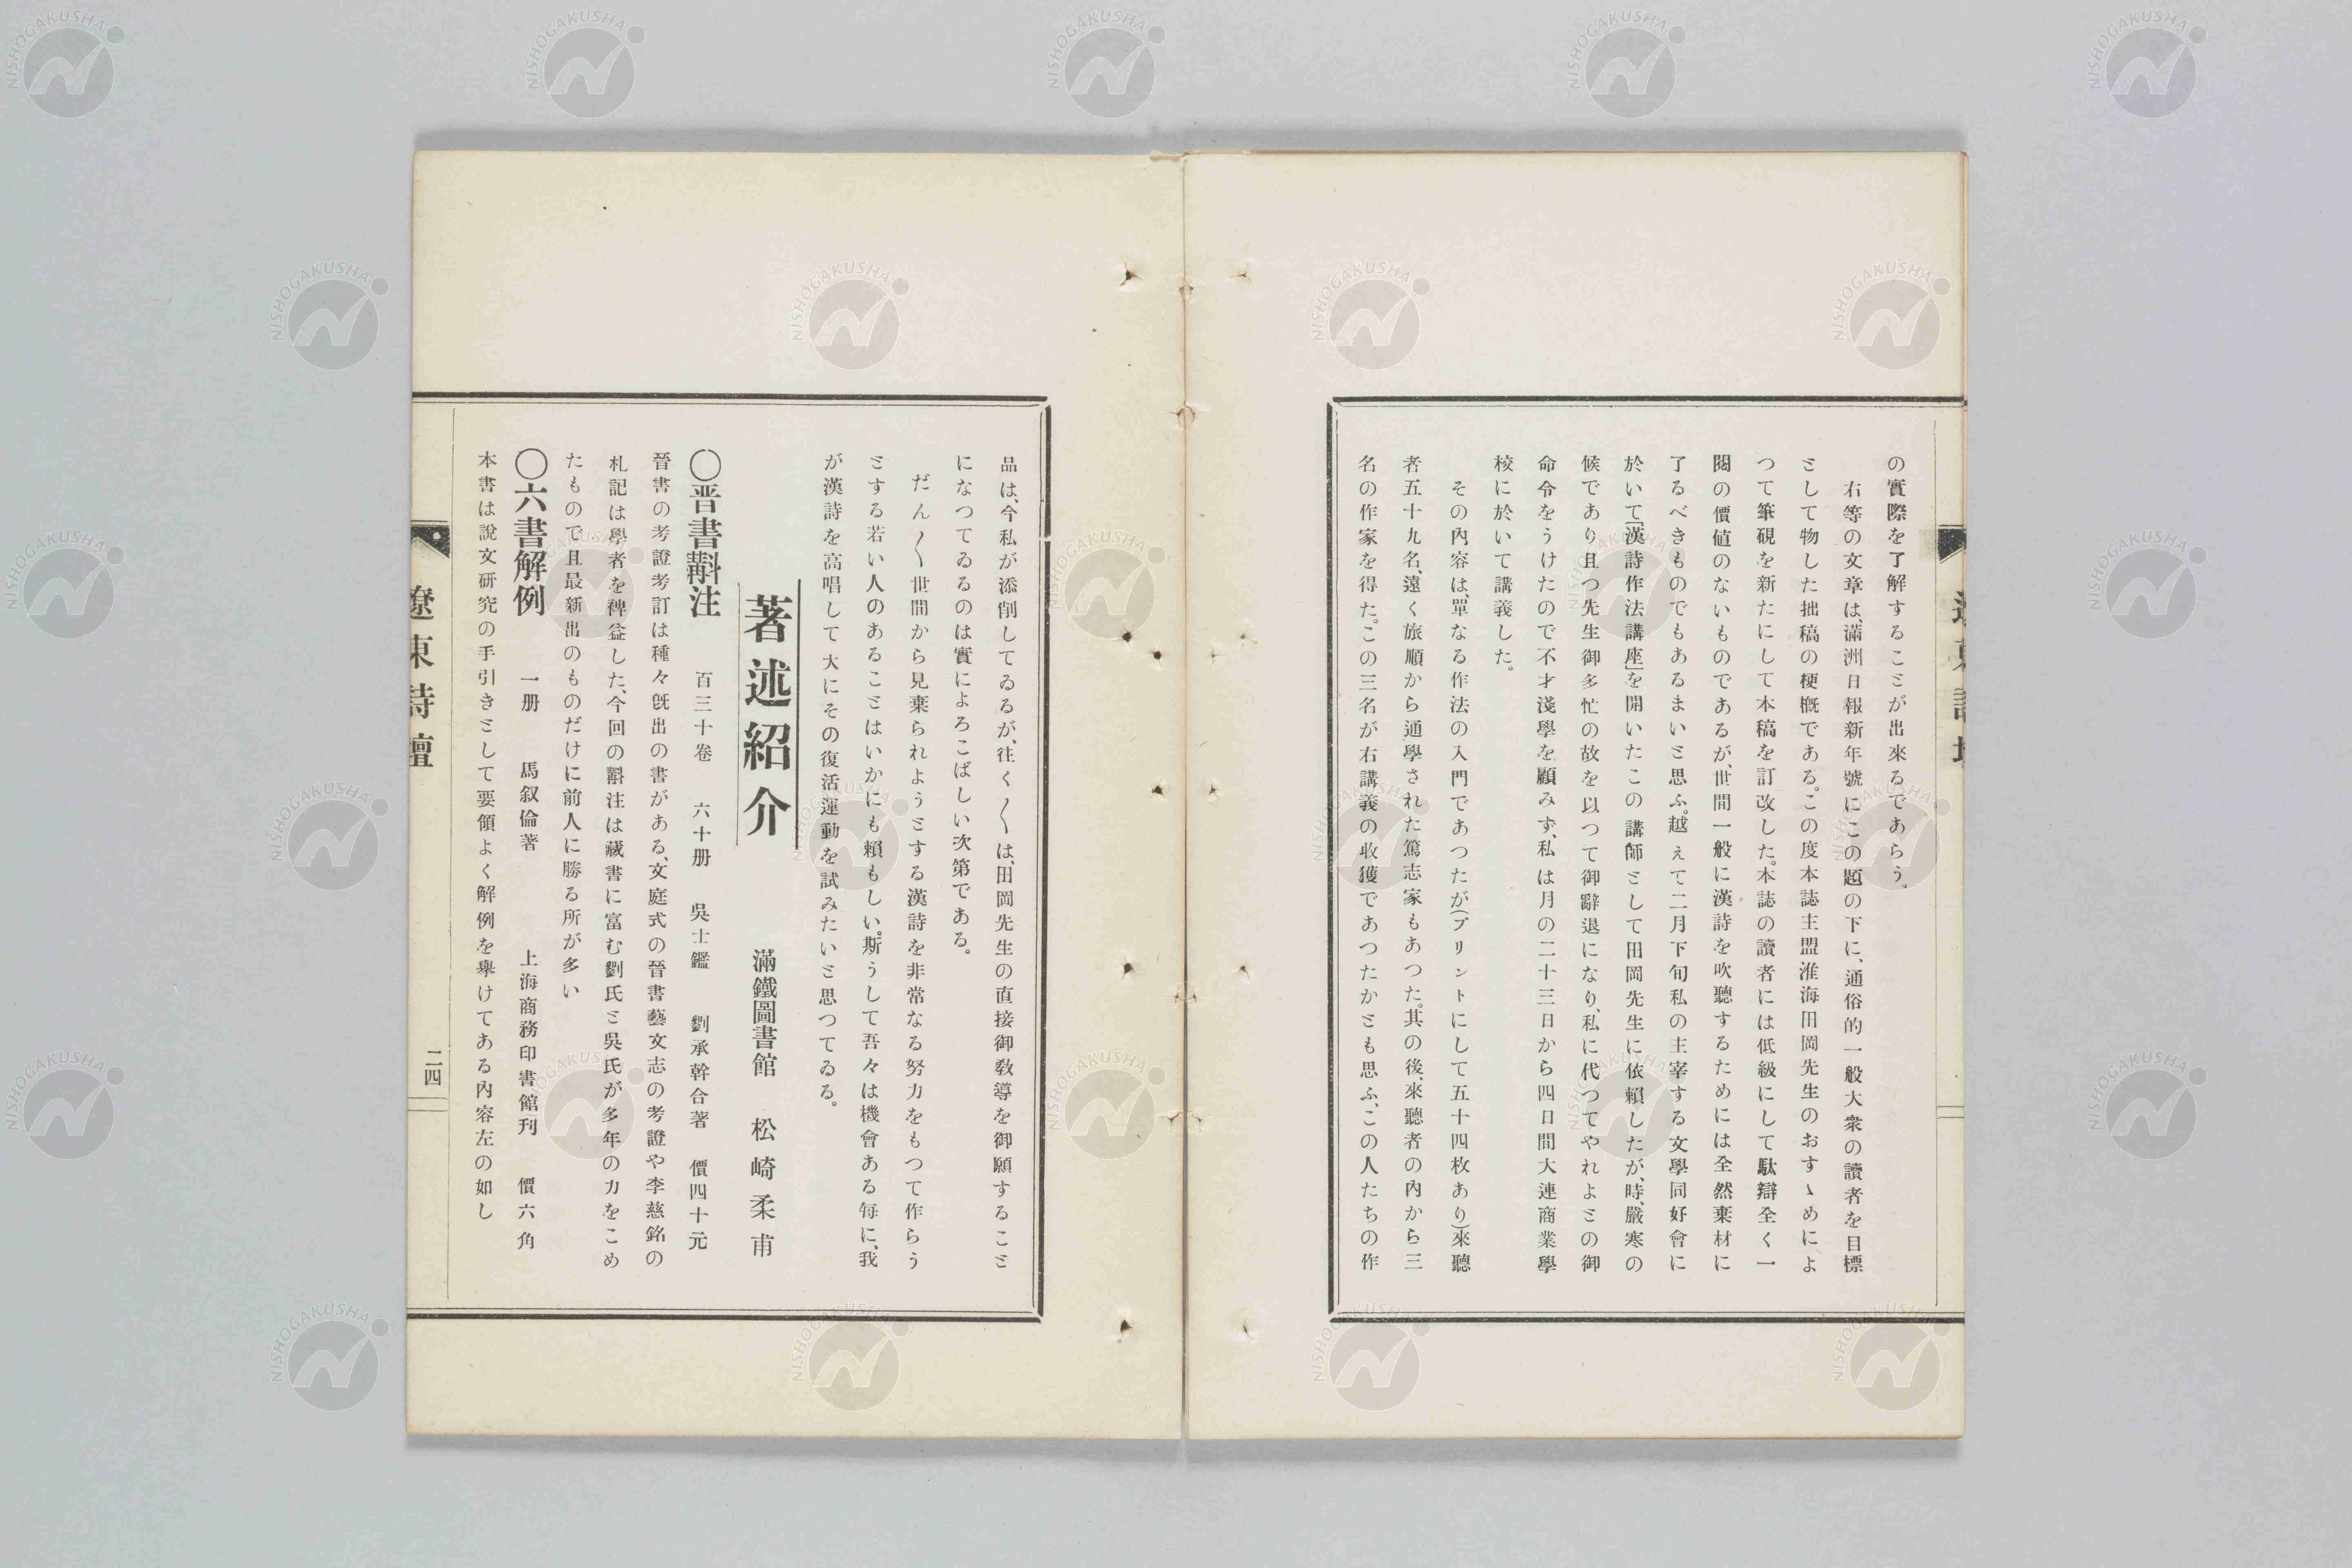 の實際を了解することが出來るであらう。
右等の文章は、滿洲日報新年號にこの題の下に、通俗的一般大衆の讀者を目標
として物した拙稿の梗槪である。この度本誌主盟淮海田岡先生のおすゝめによ
つて筆硯を新たにして本稿を訂改した。本誌の讀者には低級にして駄辯全く一
閱の價値のないものであるが、世間一般に漢詩を吹聽するためには全然棄材に
了るべきものでもあるまいと思ふ。越えて二月下旬私の主宰する文學同好會に
於いて「漢詩作法講座」を開いたこの講師として田岡先生に依賴したが、時、嚴寒の
候であり且つ先生御多忙の故を以つて御辭退になり、私に代つてやれよとの御
命令をうけたので不才淺學を顧みず、私は月の二十三日から四日間大連商業學
校に於いて講義した。
その內容は、單なる作法の入門であつたが(プリントにして五十四枚あり)來聽
者五十九名、遠く旅順から通學された篤志家もあつた。其の後、來聽者の內から三
名の作家を得た。この三名が右講義の收獲であつたかとも思ふ、この人たちの作
品は、今私が添削してゐるが、往く〱は、田岡先生の直接御敎導を御願すること
になつてゐるのは實によろこばしい次第である。
だん〱世間から見棄られようとする漢詩を非常なる努力をもつて作らう
とする若い人のあることはいかにも賴もしい。斯うして吾々は機會ある每に、我
が漢詩を高唱して大にその復活運動を試みたいと思つてゐる。
著述紹介 滿鐵圖書館 松崎柔甫
〇晋書斠注 百三十卷 六十册 吳士鑑 劉承幹合著 價四十元
晉書の考證考訂は種々旣出の書がある、文庭式の晉書藝文志の考證や李慈銘の
札記は學者を裨益した、今回の斠注は藏書に富む劉氏と吳氏が多年の力をこめ
たもので且最新出のものだけに前人に勝る所が多い
〇六書解例 一册 馬叙倫著 上海商務印書館刋 價六角
本書は說文研究の手引きとして要領よく解例を擧けてある內容左の如し
遼東詩壇
二四